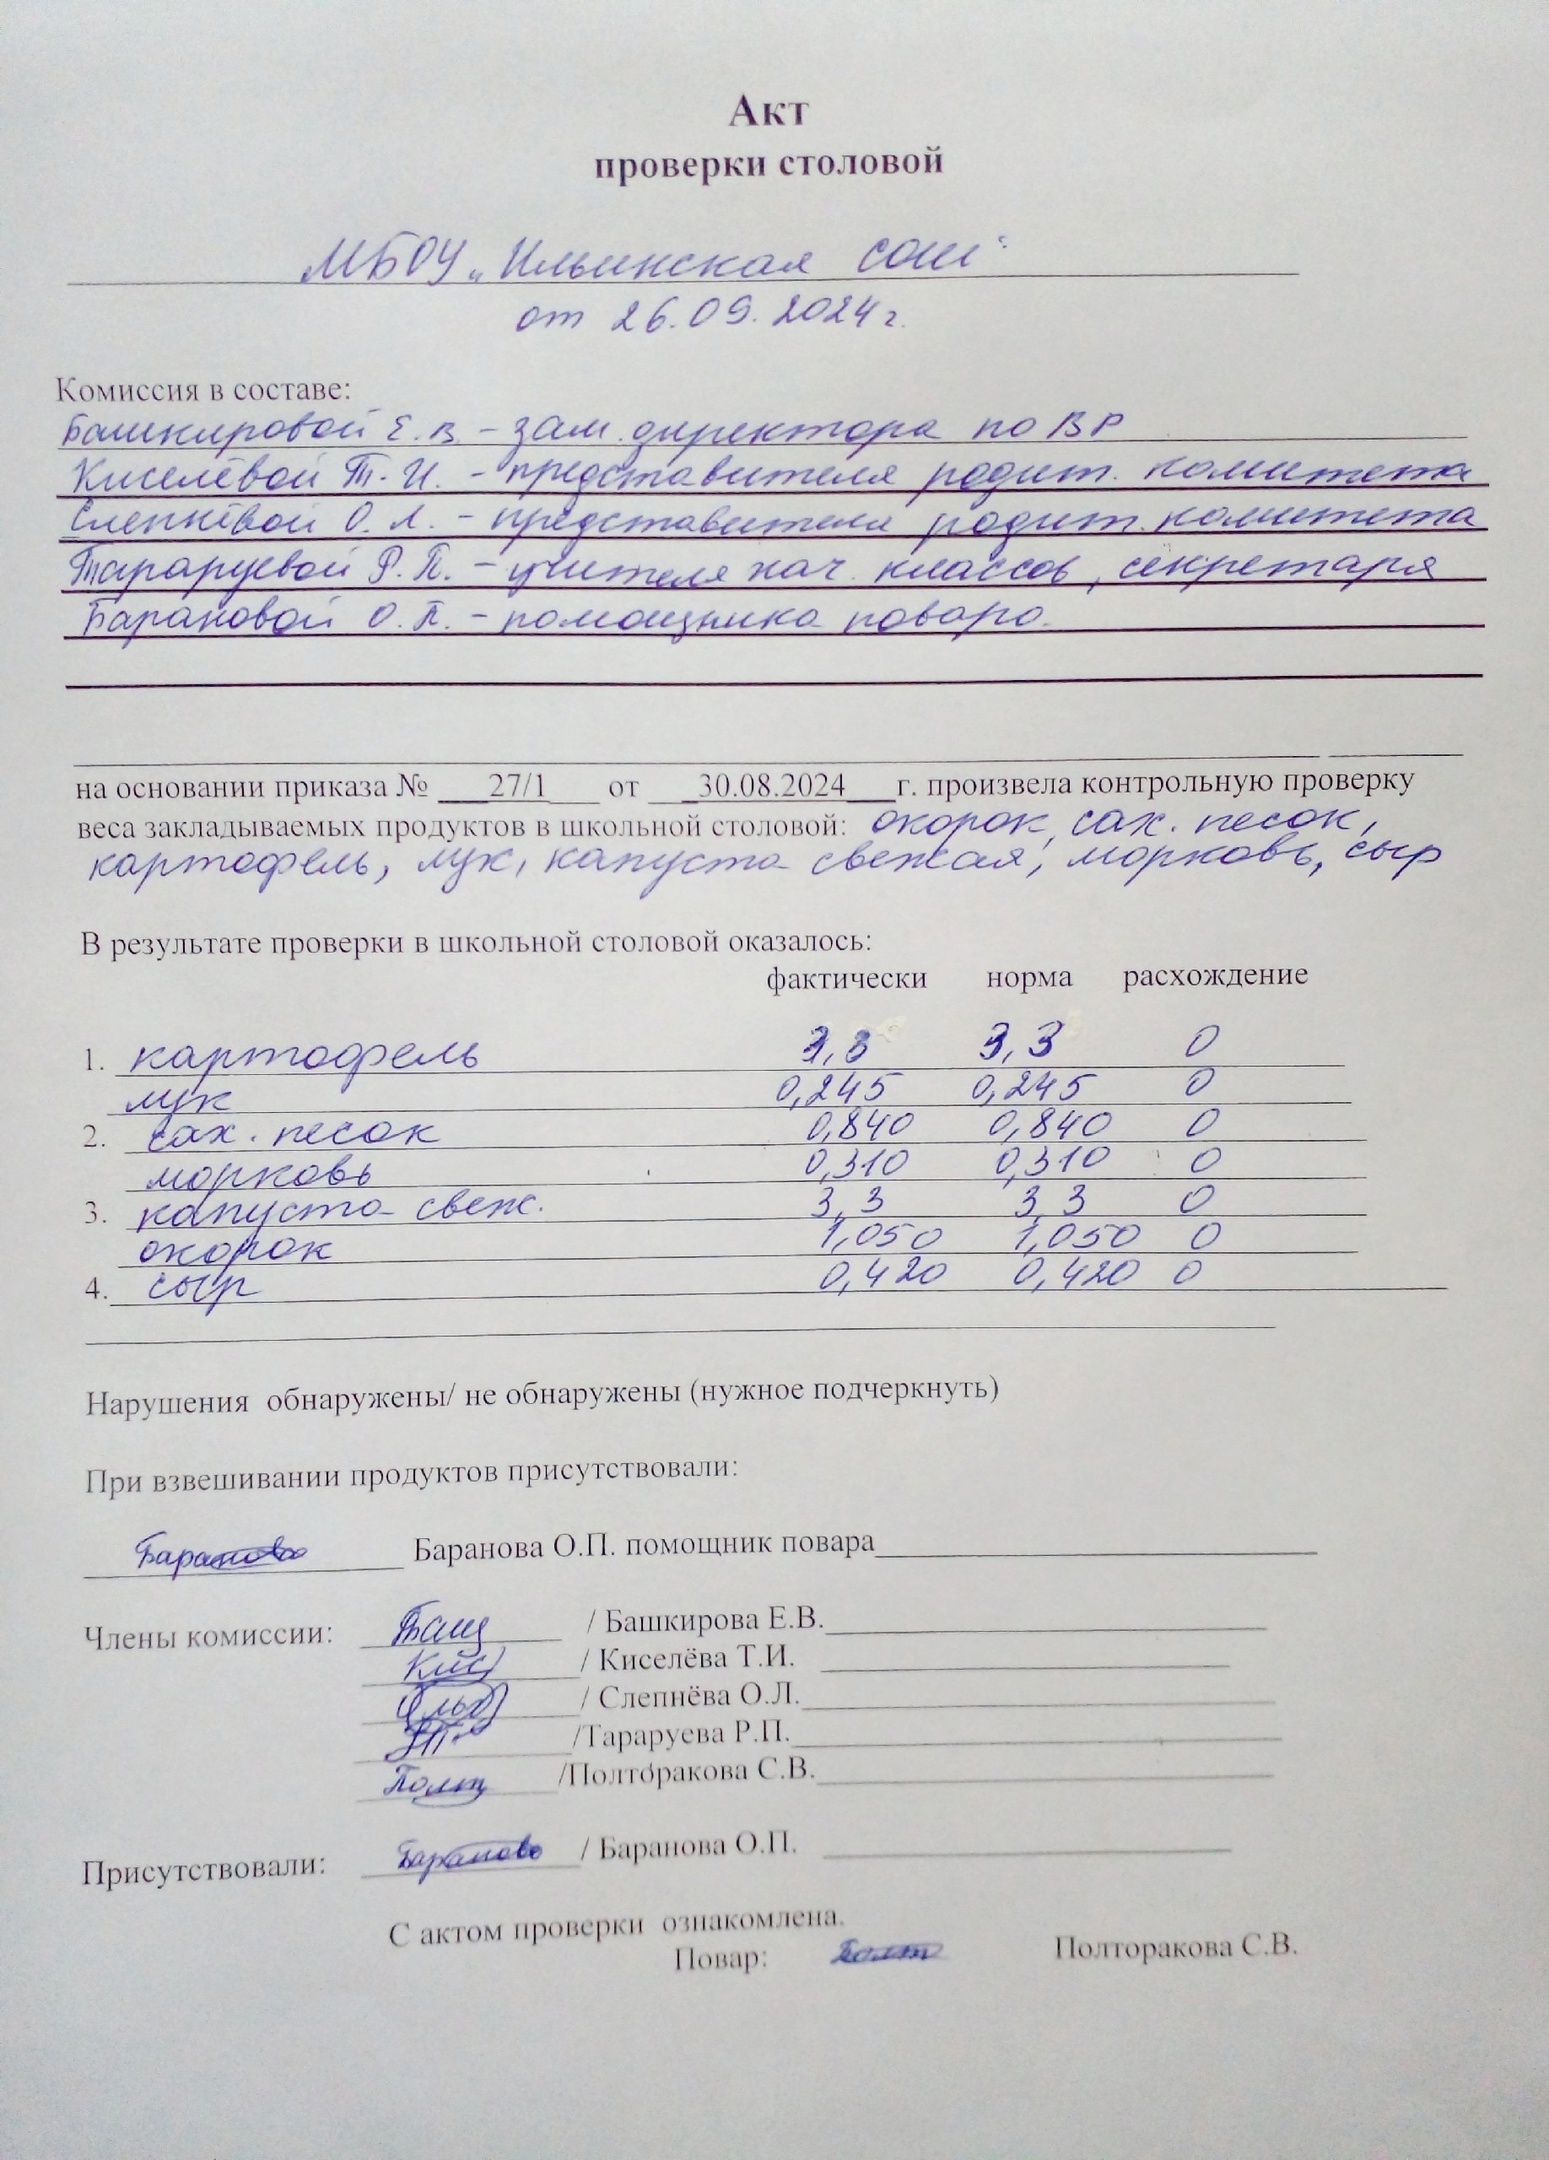 Акт
проверки столовой
МБОУ „Ильинская СОШ"
от 26.09.2024 г.
Комиссия в составе:
Башкировой Е.В. – зам. директора по ВР
Киселёвой Т.И. – представителя родит. комитета
Слепнёвой О.Л. – представителя родит. комитета
Тараруевой Р.П. – учителя нач. классов, секретаря
Барановой О.П. – помощника повара.
на основании приказа № ___27/1___ от ___30.08.2024___г. произвела контрольную проверку
веса закладываемых продуктов в школьной столовой: окорок, сах. песок,
картофель, лук, капуста свежая, морковь, сыр
В результате проверки в школьной столовой оказалось:
фактически норма расхождение
1. картофель 3,3 3,3 0
лук 0,245 0,245 0
2. сах. песок 0,840 0,840 0
морковь 0,310 0,310 0
3. капуста свеж. 3,3 3,3 0
окорок 1,050 1,050 0
4. сыр 0,420 0,420 0
Нарушения обнаружены/ не обнаружены (нужное подчеркнуть)
При взвешивании продуктов присутствовали:
Баранова Баранова О.П. помощник повара
Члены комиссии: / Башкирова Е.В.
/ Киселёва Т.И.
/ Слепнёва О.Л.
/Тараруева Р.П.
/Полторакова С.В.
Присутствовали: Баранова / Баранова О.П.
С актом проверки ознакомлена.
Повар: Полторакова С.В.